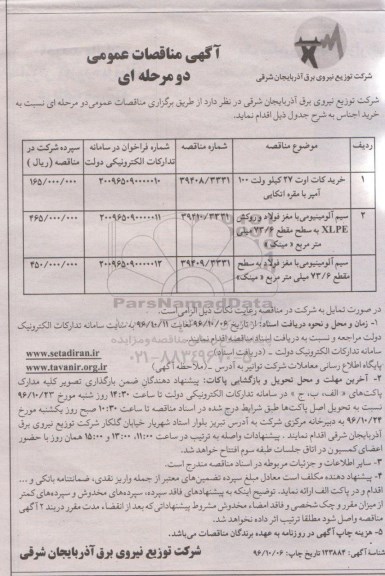 آگهی مناقصات عمومی
دو مرحله ای
شرکت توزیع نیروی برق آذربایجان شرقی
شرکت توزیع نیروی برق آذربایجان شرقی در نظر دارد از طریق برگزاری مناقصات عمومی دو مرحله ای نسبت به
خرید اجناس به شرح جدول ذیل اقدام نماید.
ردیف موضوع مناقصه شماره مناقصه شماره فراخوان در سامانه تدارکات الکترونیکی دولت سپرده شرکت در مناقصه (ریال)
۱ خرید کات اوت ۲۷ کیلو ولت ۱۰۰ آمپر با مقره اتکایی ۳۹۴۰۸/۳۳۳۱ ۲۰۰۹۶۵۰۹۰۰۰۰۰۱۰ ۱۶۵/۰۰۰/۰۰۰
۲ سیم آلومینیومی با مغز فولاد و روکش XLPE به سطح مقطع ۷۳/۶ میلی متر مربع «مینک» ۳۹۴۱۰/۳۳۳۱ ۲۰۰۹۶۵۰۹۰۰۰۰۰۱۱ ۴۶۵/۰۰۰/۰۰۰
سیم آلومینیومی با مغز فولاد به سطح مقطع ۷۳/۶ میلی متر مربع «مینک» ۳۹۴۰۹/۳۳۳۱ ۲۰۰۹۶۵۰۹۰۰۰۰۰۱۲ ۴۵۰/۰۰۰/۰۰۰
در صورت تمایل به شرکت در مناقصه رعایت نکات ذیل الزامی است.
۱- زمان و محل و نحوه دریافت اسناد: از تاریخ ۹۶/۱۰/۰۶ لغایت ۹۶/۱۰/۱۱ به سایت سامانه تدارکات الکترونیک
دولت مراجعه و نسبت به دریافت اسناد مناقصه اقدام نمایند.
سامانه تدارکات الکترونیک دولت - (دریافت اسناد) www.setadiran.ir
پایگاه اطلاع رسانی معاملات شرکت توانیر به آدرس - (ملاحظه آگهی) www.tavanir.org.ir
۲- آخرین مهلت و محل تحویل و بازگشایی پاکات: پیشنهاد دهندگان ضمن بارگذاری تصویر کلیه مدارک
پاکت‌های « الف، ب، ج » در سامانه تدارکات الکترونیکی دولت تا ساعت ۱۴:۳۰ روز شنبه مورخ ۹۶/۱۰/۲۳
نسبت به تحویل اصل پاکت‌ها طبق شرایط درج شده در اسناد مناقصه تا ساعت ۱۰:۳۰ صبح روز یکشنبه مورخ
۹۶/۱۰/۲۴ به دبیرخانه مرکزی شرکت به آدرس تبریز بلوار استاد شهریار خیابان گلکار شرکت توزیع نیروی برق
آذربایجان شرقی اقدام نمایند. پیشنهادات واصله به ترتیب در ساعت ۱۱:۰۰، ۱۳:۰۰ و ۱۵:۰۰ همان روز با حضور
اعضای کمیسیون در اتاق جلسات طبقه سوم افتتاح خواهد شد.
۳- سایر اطلاعات و جزئیات مربوطه در اسناد مناقصه مندرج است.
۴- پیشنهاد دهنده مکلف است معادل مبلغ سپرده تضمین‌های معتبر از جمله واریز نقدی، ضمانتنامه بانکی و ...
اقدام و در پاکت الف ارائه نماید. توضیح اینکه به پیشنهادهای فاقد سپرده، سپرده‌های مخدوش و سپرده‌های کمتر
از میزان مقرر و چک شخصی و فاقد امضاء مخدوش مشروط پیشنهاداتی که بعد از انقضاء مدت مقرر در بند ۲ آگهی
مناقصه واصل شود مطلقا ترتیب اثر داده نخواهد شد.
۵- هزینه چاپ آگهی در روزنامه به عهده برندگان مناقصات می‌باشد.
شناسه آگهی: ۱۲۳۸۸۴ تاریخ چاپ: ۹۶/۱۰/۰۶ شرکت توزیع نیروی برق آذربایجان شرقی
ParsNamadData
۰۲۱-۸۸۳۴۹۶۷۰-۵